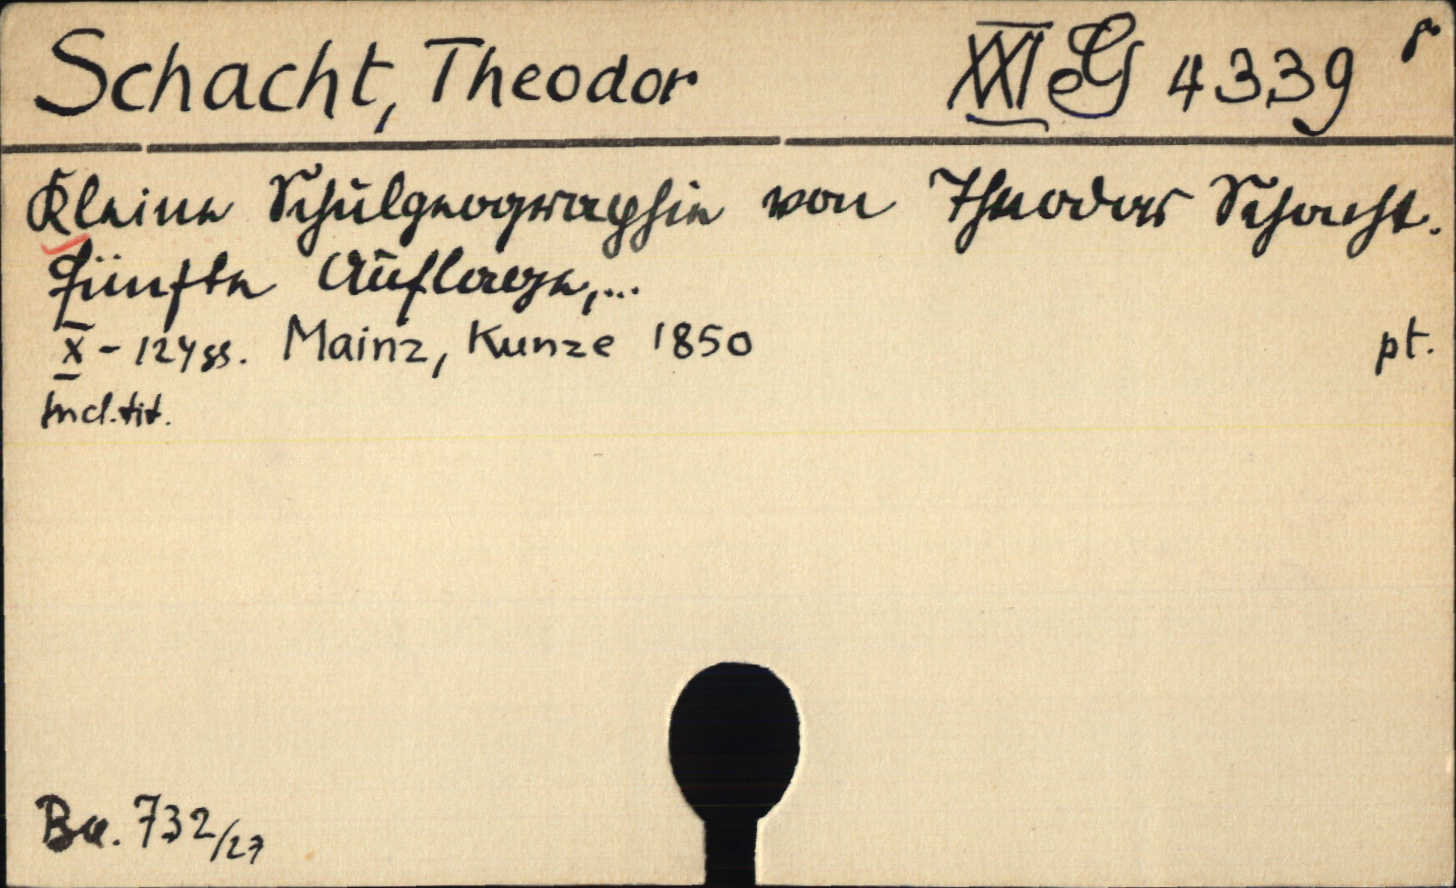 Schacht, Theodor XXI e G 4339 r
Kleine Schulgeographie von Theodor Schacht.
Fünfte Auflage,...
X - 124 ss. Mainz, Kunze 1850 pt.
Incl. tit.
Ba. 732/27